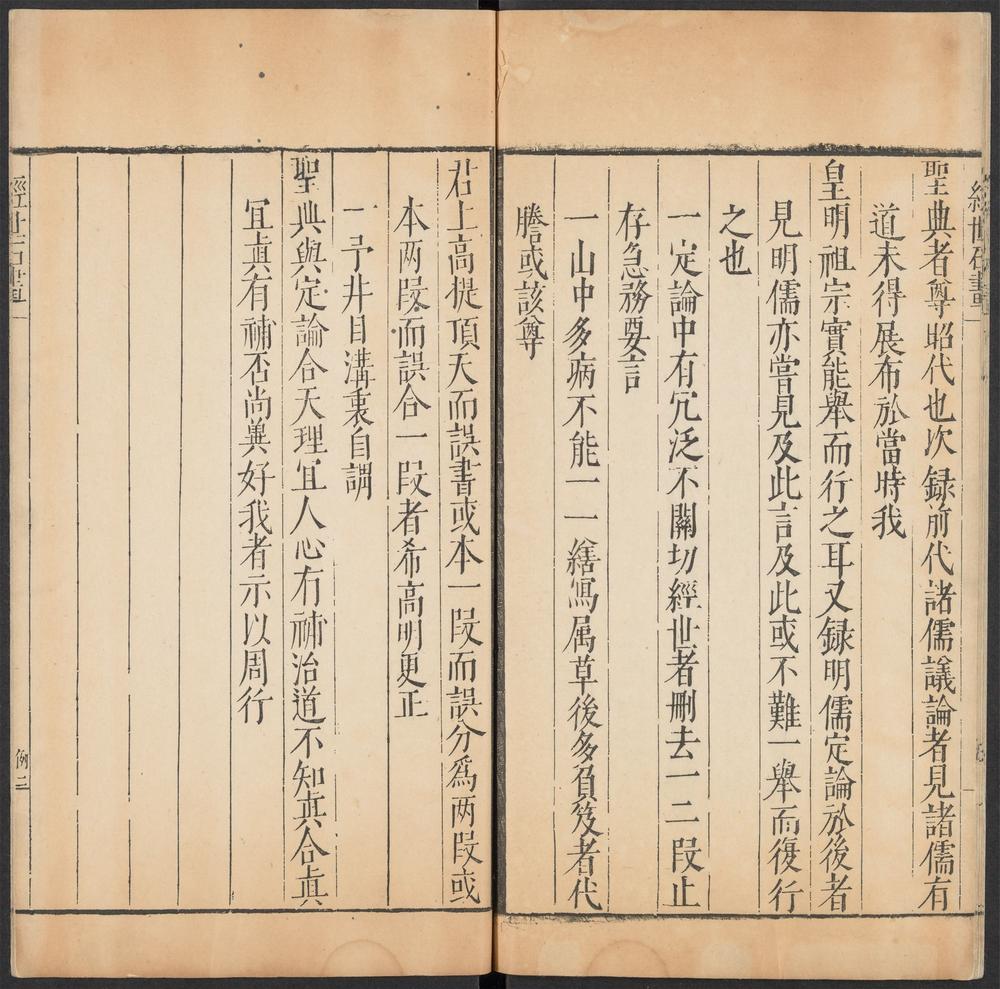 經世石畫
聖典者尊昭代也次録前代諸儒議論者見諸儒有
道未得展布於當時我
皇明祖宗實能舉而行之耳又録明儒定論於後者
見明儒亦嘗見及此言及此或不難一舉而復行
之也
一定論中有冗泛不關切經世者刪去一二段止
存急務要言
一山中多病不能一一繕寫属草後多負笈者代
謄或該尊
君上高提頂天而誤書或本一段而誤分爲两段或
本两段而誤合一段者希高明更正
一予井目溝裏自謂
聖典與定論合天理宜人心有補治道不知真合真
宜真有補否尚兾好我者示以周行
經世石畫
例二